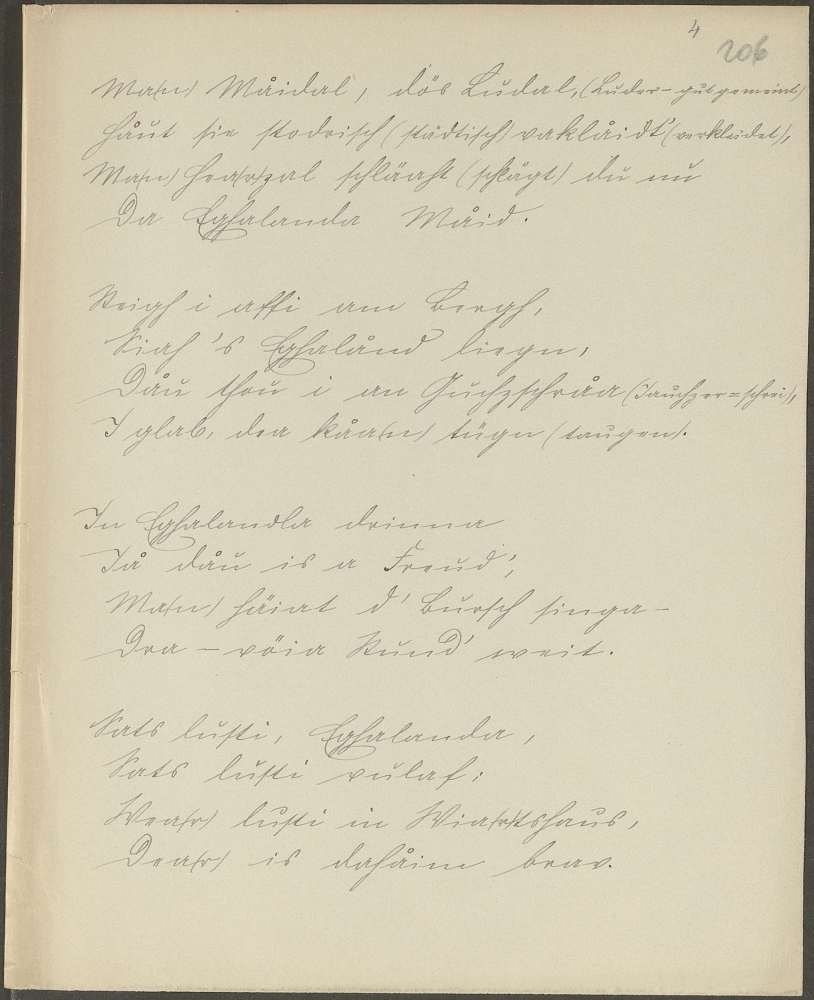 4
206
Ma(n) Måidal, dös Ludal, (Luder - gut gemeint)
Håut sie stodrisch (städtisch) vaklåidt (verkleidet),
Ma(n) Hea(r)zal schläght (schlägt) du nu
Da Eghalanda Måid.
Steigh i affi am Bergh,
Siah 's Eghalånd liegn,
Dåu thou i an Guchzschråa (Jauchzer=schrei),
I glab, dea kåa(n) tügn (taugen).
In Eghalandla drinna
Jå dåu is a Freud',
Ma(n) häiat d' Bursch singa -
Dra - vöia Stund' weit.
Sats lusti, Eghalanda,
Sats lusti vulaf;
Wea(r) lusti in Wia(r)tshaus,
Dea(r) is dahåim brav.